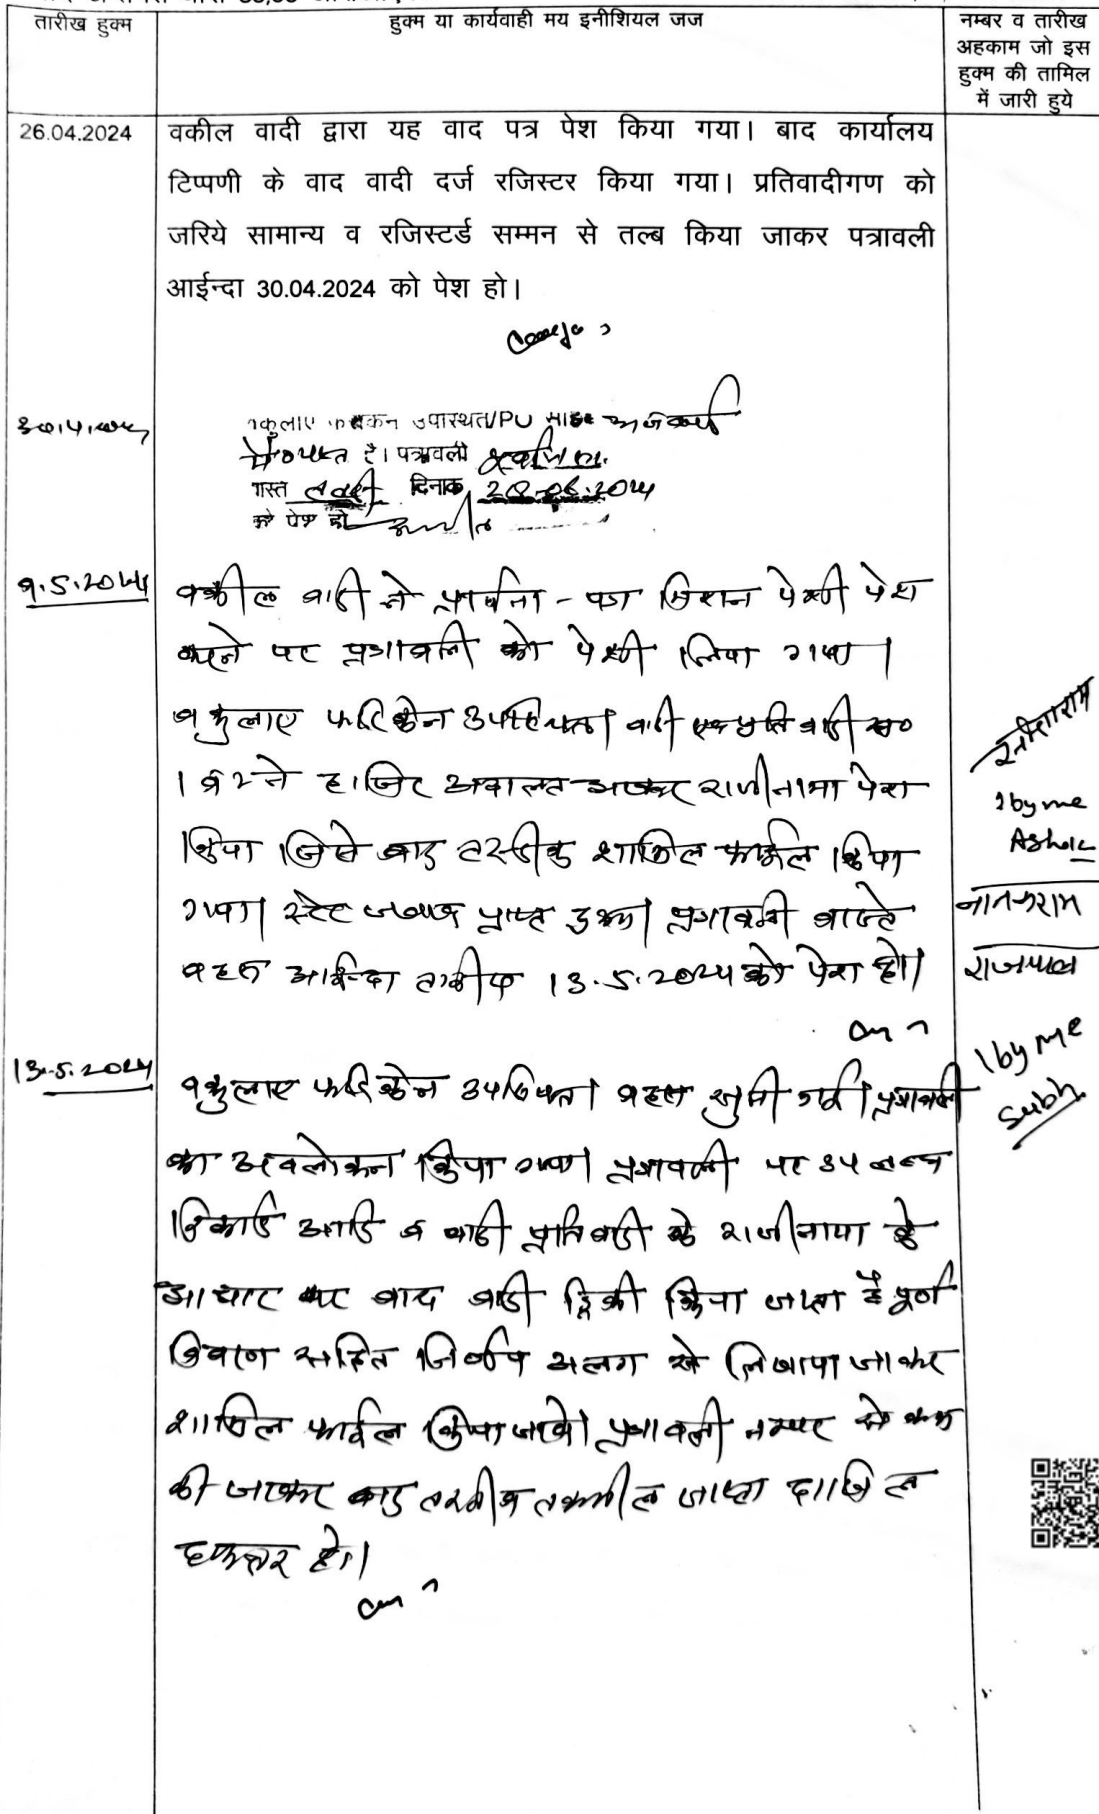 तारीख हुक्म
हुक्म या कार्यवाही मय इनीशियल जज
नम्बर व तारीख
अहकाम जो इस
हुक्म की तामिल
में जारी हुये
26.04.2024
वकील वादी द्वारा यह वाद पत्र पेश किया गया। बाद कार्यालय
टिप्पणी के वाद वादी दर्ज रजिस्टर किया गया। प्रतिवादीगण को
जरिये सामान्य व रजिस्टर्ड सम्मन से तल्ब किया जाकर पत्रावली
आईन्दा 30.04.2024 को पेश हो।
उपस्थत/PU
है। पत्रावली
दिनांक
को पेश हो
9.5.2024
वकील वादी ने प्रार्थना-पत्र पेशी पेश
करने पर पत्रावली को पेशी लिया गया।
वकुलाए फरिकेन उपस्थित। वादी एवं प्रतिवादी सं०
1 व 2 ने हाजिर अदालत आकर राजीनामा पेश
किया जिसे बाद तस्दीक शामिल फाईल किया
गया। स्टेट जवाब प्राप्त हुआ। पत्रावली वास्ते
बहस आईन्दा तारीख 13.5.2024 को पेश हो।
सीताराम
by me
Ashok
नानकराम
राजपाल
1 by me
Subh
13.5.2024
वकुलाए फरिकेन उपस्थित। बहस सुनी गई। पत्रावली
का अवलोकन किया गया। पत्रावली पर उपलब्ध
रिकार्ड आदि व वादी प्रतिवादी के राजीनामा के
आधार पर वाद वादी डिक्री किया जाता है पूर्ण
विवरण सहित निर्णय अलग से लिखाया जाकर
शामिल फाईल किया जावे। पत्रावली नम्बर से कम
की जाकर बाद तकमील जाप्ता दाखिल
दफ्तर हो।